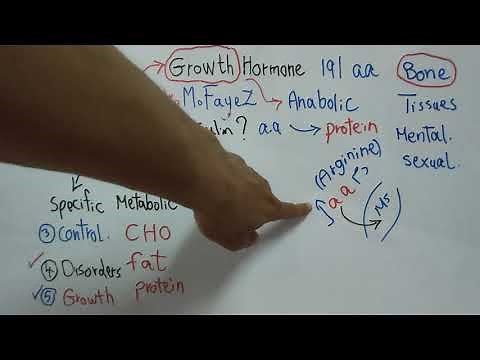 Growth Hormone 191 aa Bone
MoFayeZ Anabolic Tissues
? a.a → protein Mental.
sexual.
(Arginine)
aa
Ms
Specific Metabolic
③ Control. CHO
④ Disorders fat
⑤ Growth protein